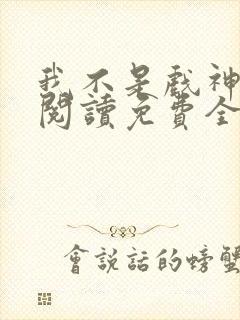 我不是戲神
閱讀免費全
會說話的螃蟹